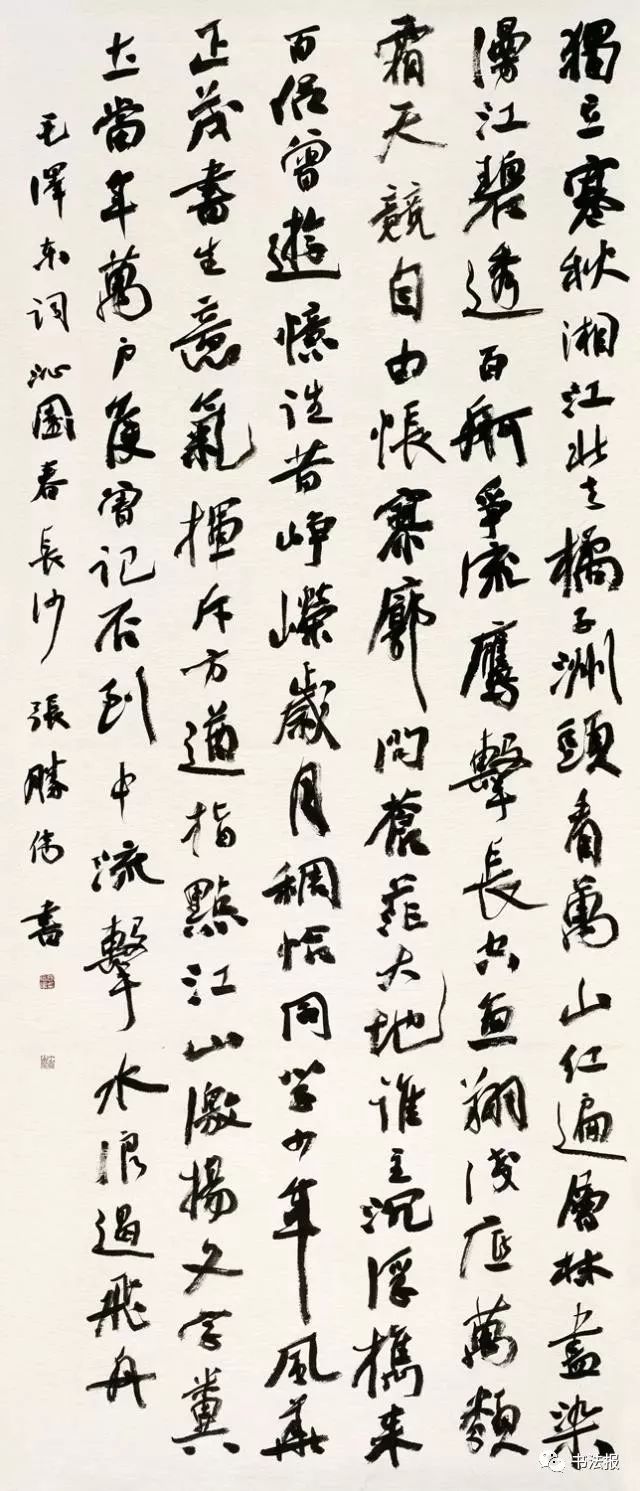 獨立寒秋湘江北去橘子洲頭看萬山紅遍層林盡染
漫江碧透百舸爭流鷹擊長空魚翔淺底萬類
霜天競自由悵寥廓問蒼茫大地誰主沉浮攜來
百侶曾遊憶往昔崢嶸歲月稠恰同學少年風華
正茂書生意氣揮斥方遒指點江山激揚文字糞
土當年萬戶侯曾記否到中流擊水浪遏飛舟
毛澤东詞沁園春長沙 張勝偉書
书法报